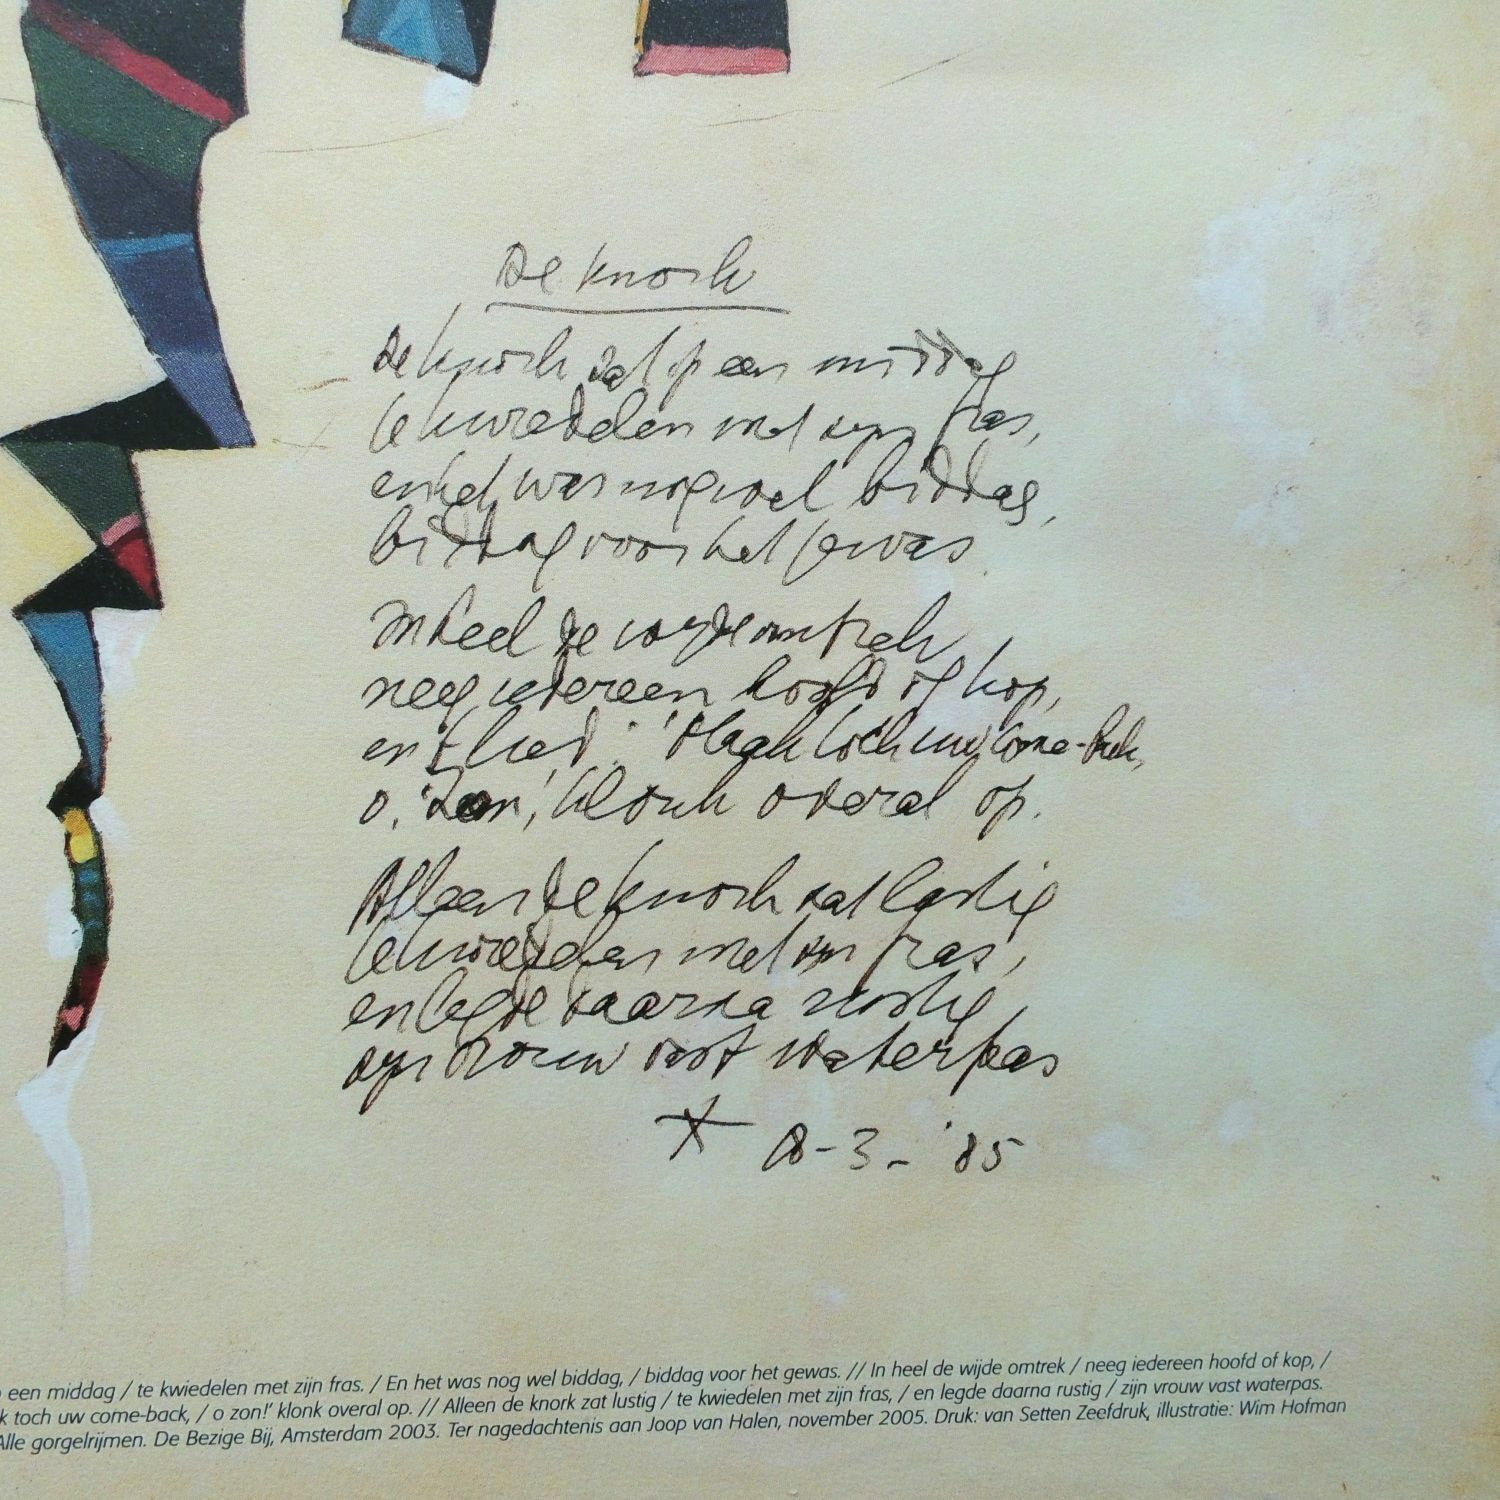 De knork
De knork zat op een middag
te kwiedelen met zijn fras,
en het was nog wel biddag,
biddag voor het gewas.
In heel de wijde omtrek
neeg iedereen hoofd of kop,
en 't lied: 'Maak toch uw come-back,
o, zon,' klonk overal op.
Alleen de knork zat lustig
te kwiedelen met zijn fras,
en legde daarna rustig
zijn vrouw vast waterpas
18-3-'85
een middag / te kwiedelen met zijn fras. / En het was nog wel biddag, / biddag voor het gewas. // In heel de wijde omtrek / neeg iedereen hoofd of kop, /
k toch uw come-back, / o zon!' klonk overal op. // Alleen de knork zat lustig / te kwiedelen met zijn fras, / en legde daarna rustig / zijn vrouw vast waterpas.
Alle gorgelrijmen. De Bezige Bij, Amsterdam 2003. Ter nagedachtenis aan Joop van Halen, november 2005. Druk: van Setten Zeefdruk, illustratie: Wim Hofman